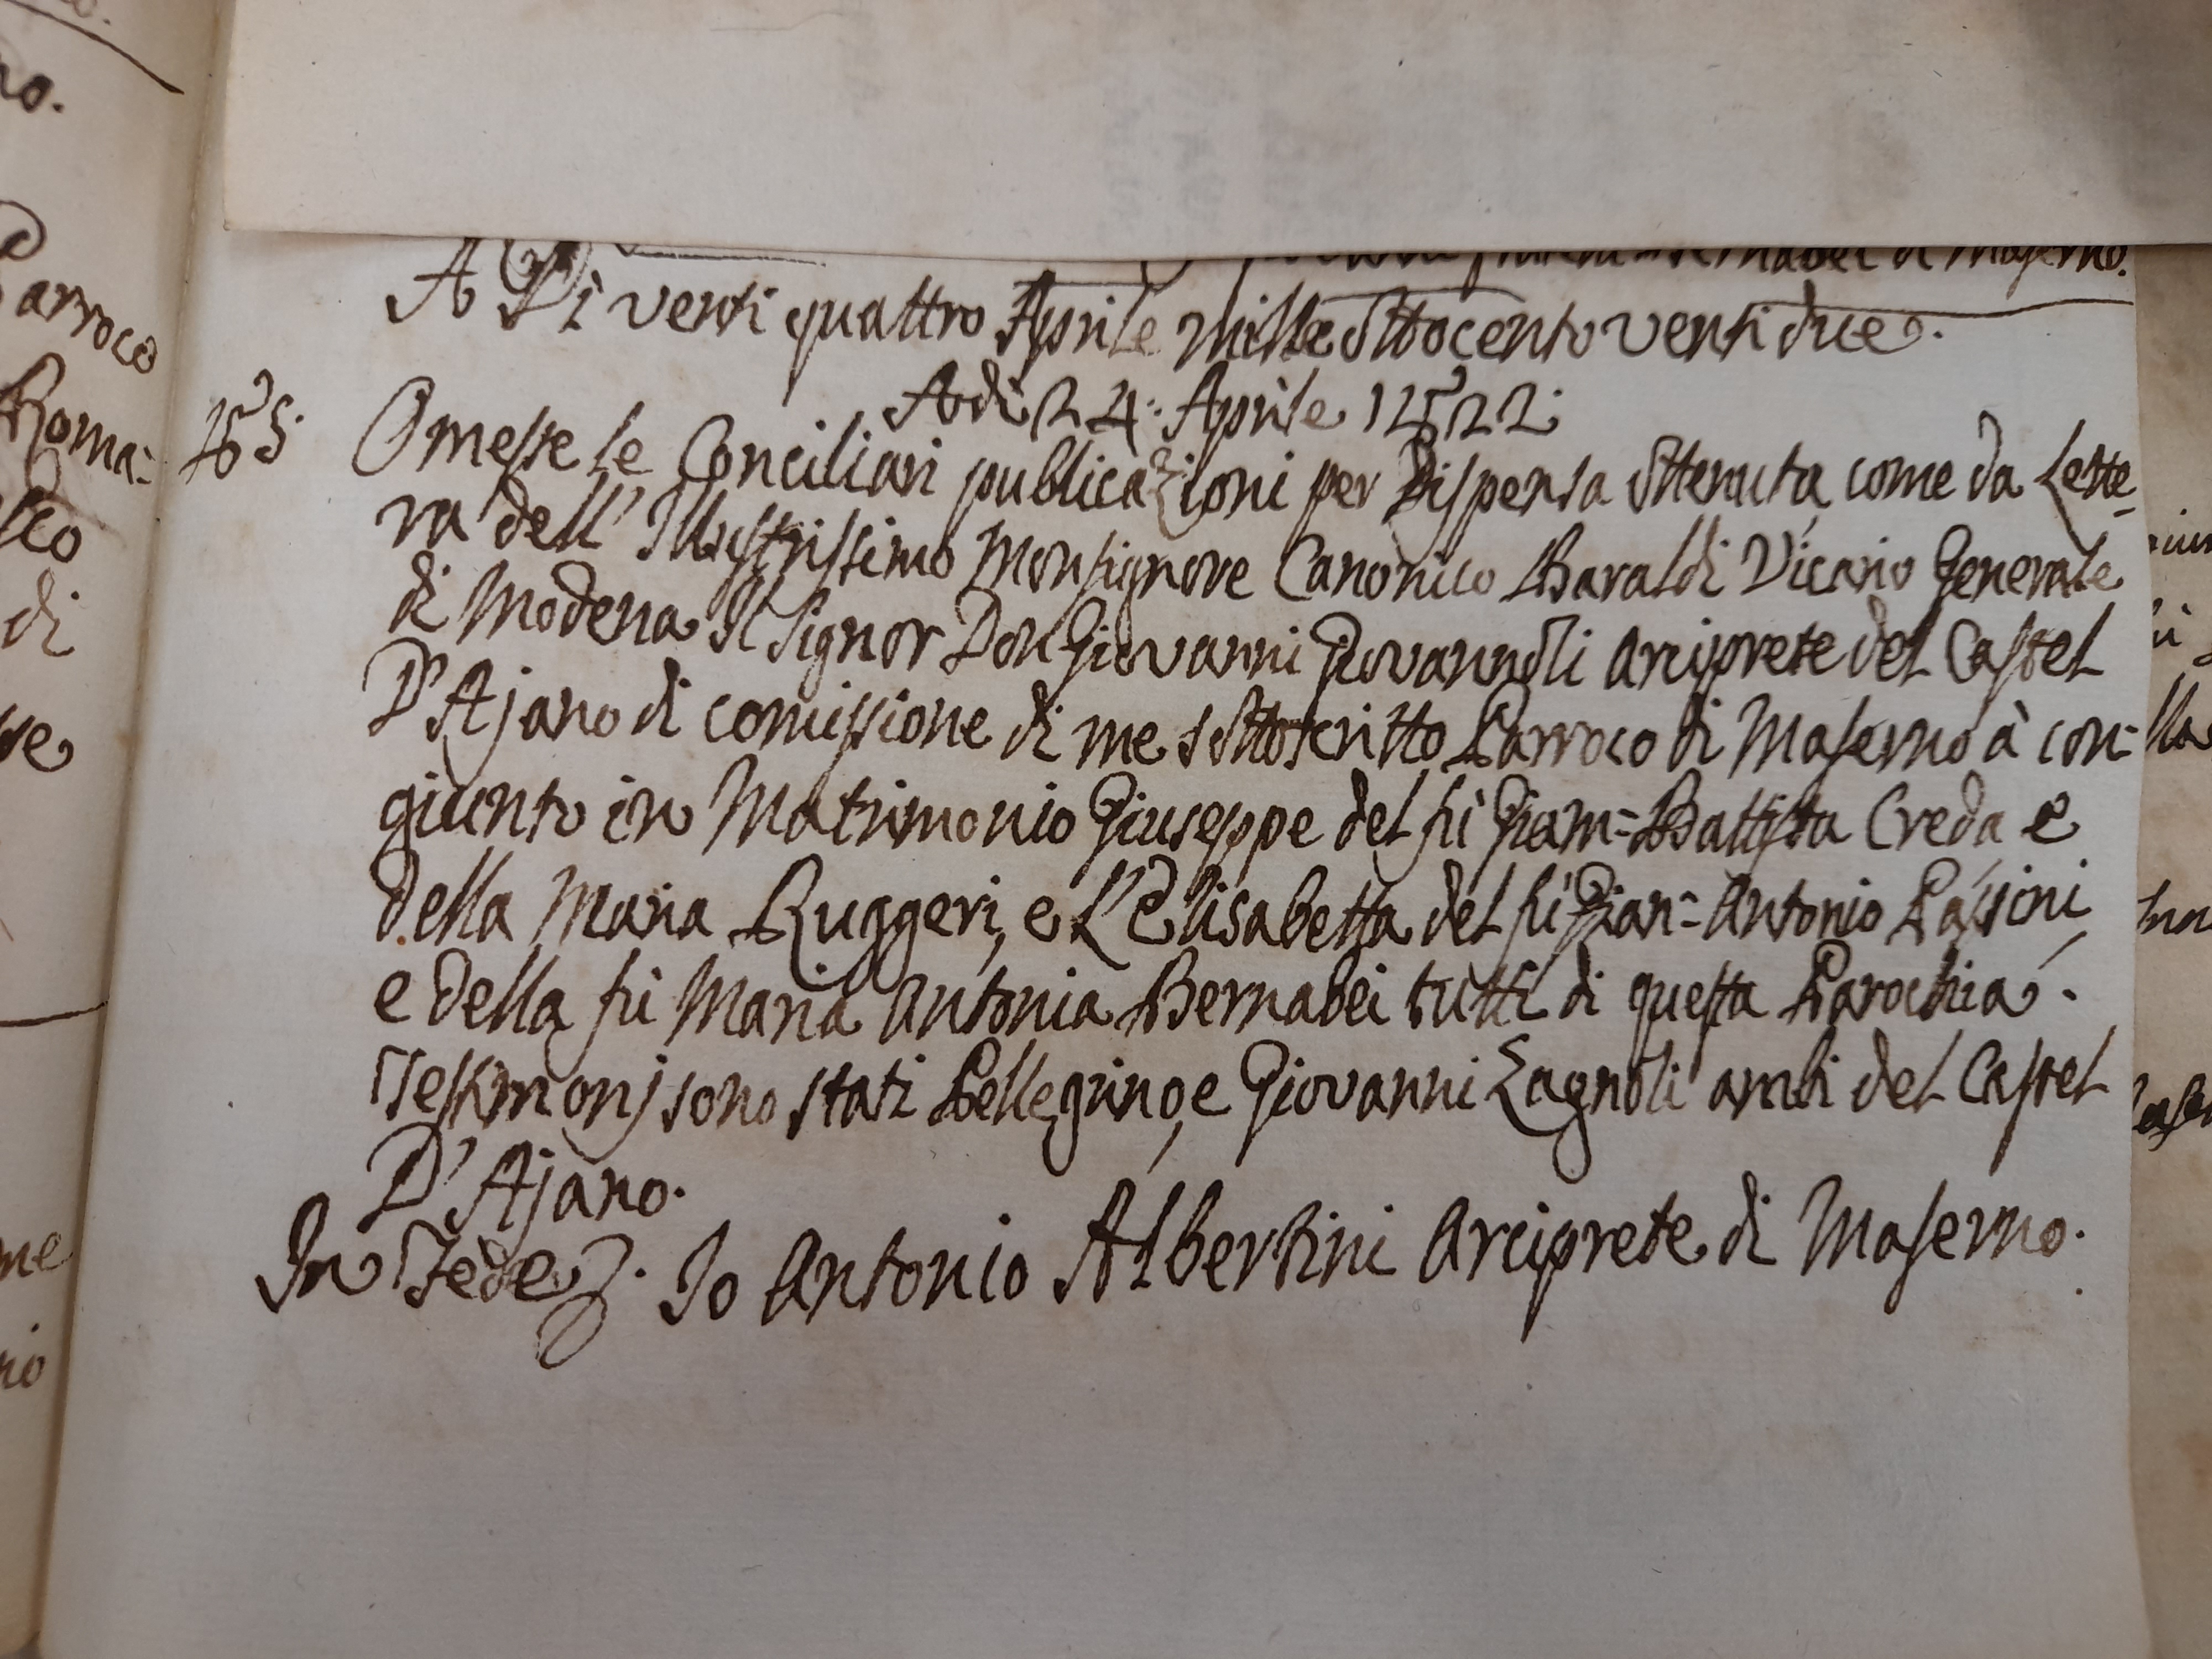 di Maserno.
A Di venti quattro Aprile mille Ottocento venti due.
Adi 24. Aprile 1822.
85. Omesse le Conciliari publicazioni per Dispensa Ottenuta come da Lette=
ra dell' Illustrissimo Monsignore Canonico Baraldi Vicario Generale
di Modena Il Signor Don Giovanni Giovannoli Arciprete del Castel
D'Ajano di comissione di me sottoscritto Parroco di Maserno à con=
giunto in Matrimonio Giuseppe del fù Giam=Battista Creda e
della Maria Ruggeri, e L'Elisabetta del fù Gian=Antonio Passini
e della fù Maria Antonia Bernabei tutti di questa Parochia.
Testimonj sono stati Pellegrino, e Giovanni Zagnoli ambi del Castel
D'Ajano.
In Fede. Io Antonio Albertini Arciprete di Maserno.
Parroco
Roma=
di